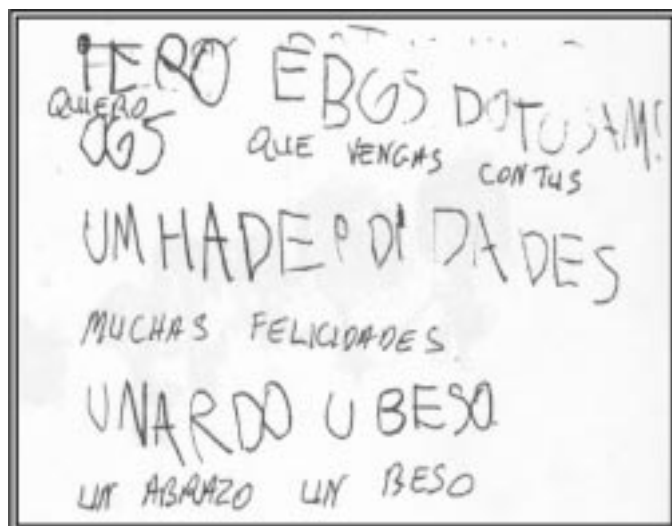 IERO EBGS DOTUSAMI
QUIERO QUE VENGAS CON TUS
OGS
UMHADEPDIDADES
MUCHAS FELICIDADES
UNARDO U BESO
UN ABRAZO UN BESO